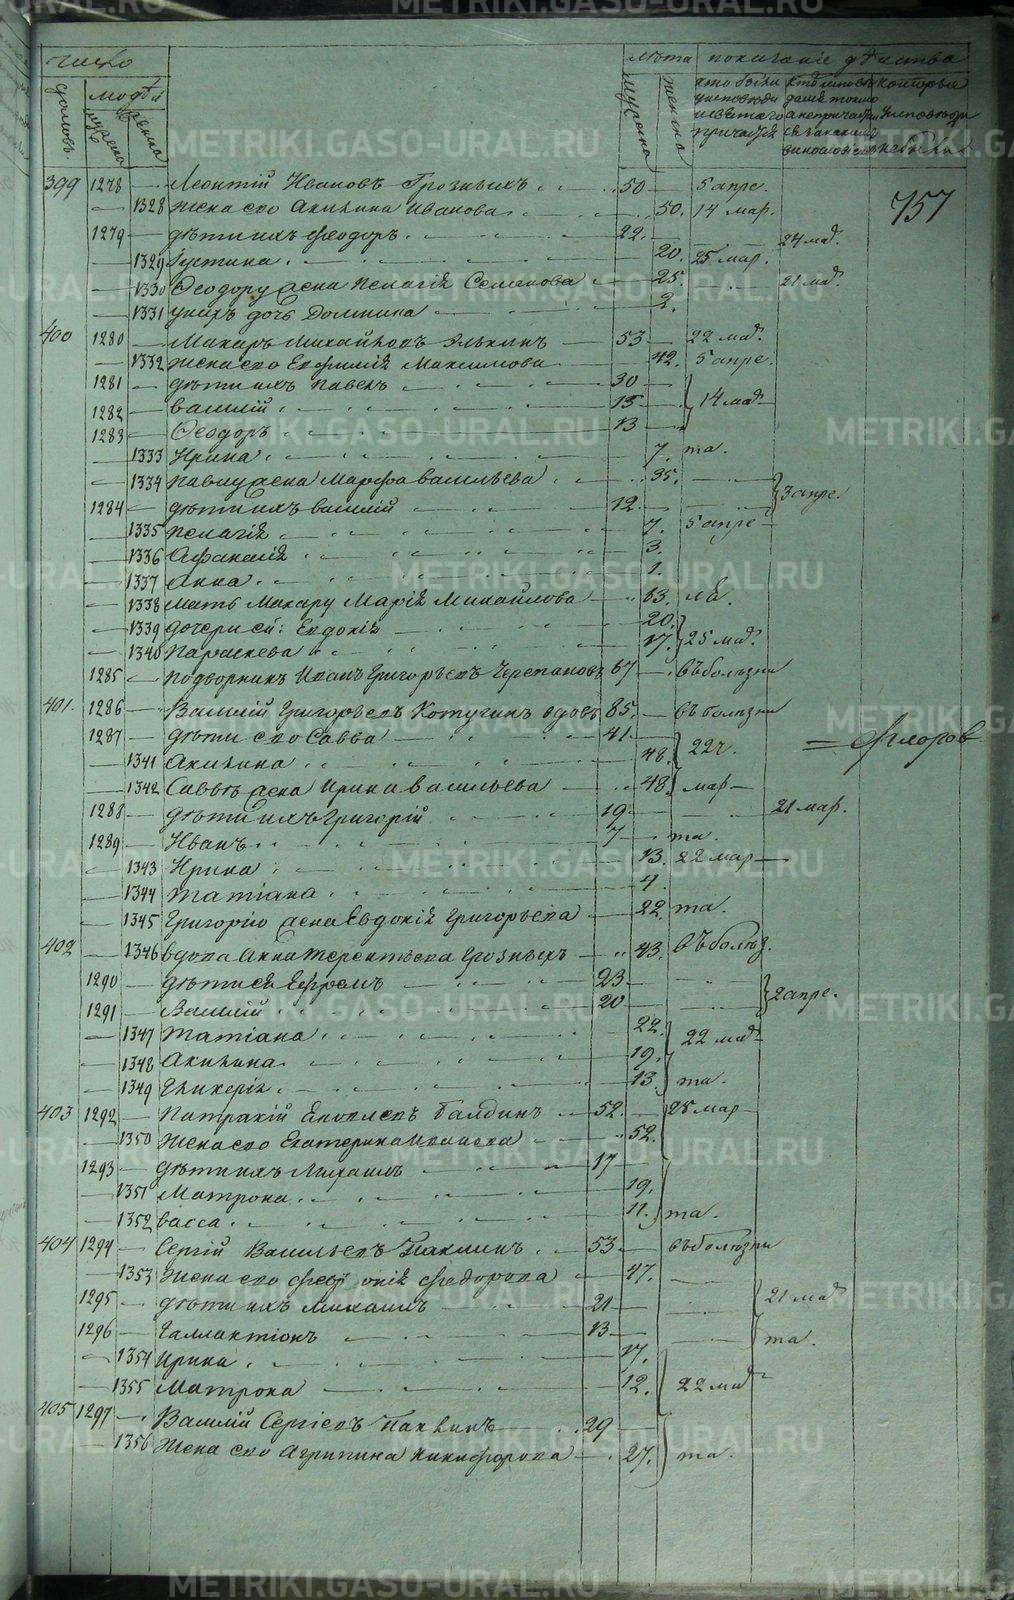 число
лѣта показаніе дѣйства
домовъ. людей
мужска женска
мужска женска
399 1278 Леонтій Ивановъ Грозныхъ 50 5 апре.
1328 жена его Акилина Иванова 50. 14 мар.
757
1279 дѣти ихъ Феодоръ 22. 24 мар.
1329 Іустина 20. 25 мар.
1330 Феодору жена Пелагія Семенова 25. 21 мар.
1331 у нихъ дочь Домника 2.
400 1280 Макаръ Михайловъ Элькинъ 53 22 мар.
1332 жена его Евфимія Максимова 42. 5 апре.
1281 дѣти ихъ Павелъ 30
1282 Василій 15 14 мар
1283 Феодоръ 13
1333 Ирина 7. та.
1334 Павлу жена Марфа Васильева 35. 3 апре.
1284 дѣти ихъ Василій 12
1335 Пелагія 7. 5 апре
1336 Афанасія 3.
1337 Анна 1.
1338 мать Макару Марія Михайлова 63.
1339 дочери ей: Евдокія 20.
1340 Параскева 17. 25 мар.
1285 подворникъ Иванъ Григорьевъ Черепановъ 67 въ болѣзни
401. 1286 Василій Григорьевъ Котугинъ вдовъ 85. въ болѣзни
1287 дѣти его Савва 41 22 ч.
Флоровъ
1341 Акилина 48.
1342 Саввѣ жена Ирина Васильева 48. мар
1288 дѣти ихъ Григорій 19 21 мар.
1289 Иванъ 7 та.
1343 Ирина 13. 22 мар
1344 Татіана 4.
1345 Григорію жена Евдокія Григорьева 22. та.
402 1346 вдова Анна Терентьева Грозныхъ 43. въ болѣз.
1290 дѣти ея Ефремъ 23
1291 Василій 20 2 апре.
1347 Татіана 22. 22 мар
1348 Акилина 19.
1349 Гликерія 13. та.
403 1292 Патракій Евловевъ Балдинъ 52. 25 мар
1350 жена его Екатерина Иванова 52.
1293 дѣти ихъ Михаилъ 17
1351 Матрона 19.
1352 Васса 11. та.
404 1294 Сергій Васильевъ Паклинъ 53 въ болѣзни
1353 жена его Феврония Федорова 47.
1295 дѣти ихъ Михаилъ 21 21 мар
1296 Галлактіонъ 13 та.
1354 Ирина 17.
1355 Матрона 12. 22 мар
405 1297 Василій Сергіевъ Паклинъ 29
1356 жена его Агрипина Никифорова 27. та.
METRIKI.GASO-URAL.RU